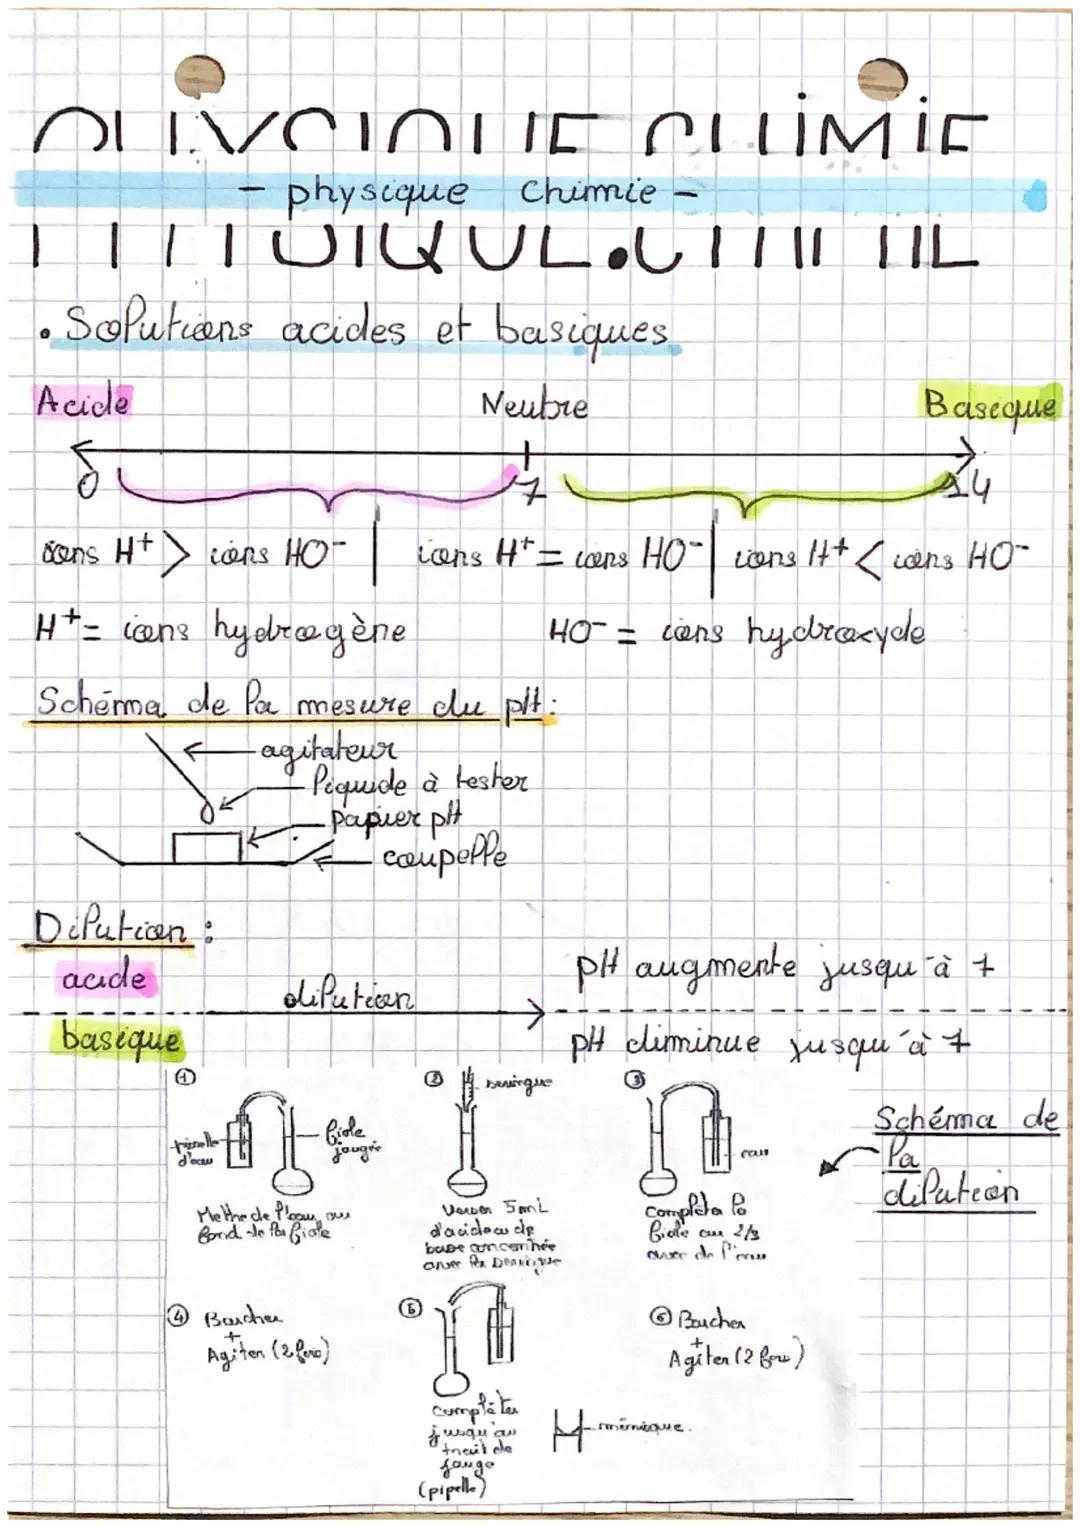 PHYSIQUE CHIMIE
- physique Chimie -
PHYSIQUE.CHIMIE
• Solutions acides et basiques
Acide Neutre Basique
0 7 14
ions H+ > ions HO- | ions H+ = ions HO- | ions H+ < ions HO-
H+ = ions hydrogène HO- = ions hydroxyde
Schéma de la mesure du pH :
agitateur
liquide à tester
papier pH
coupelle
Dilution :
acide
dilution
pH augmente jusqu'à 7
basique
pH diminue jusqu'à 7
① ② seringue ③
pissette d'eau
fiole jaugée
eau
Mettre de l'eau au
fond de la fiole
Verser 5 mL
d'acide ou de
base concentrée
avec la seringue
Compléter la
fiole au 2/3
avec de l'eau
Schéma de
la
dilution
④ Boucher
+
Agiter (2 fois)
⑤
compléter
jusqu'au
trait de
jauge
(pipette)
ménisque.
⑥ Boucher
+
Agiter (2 fois)